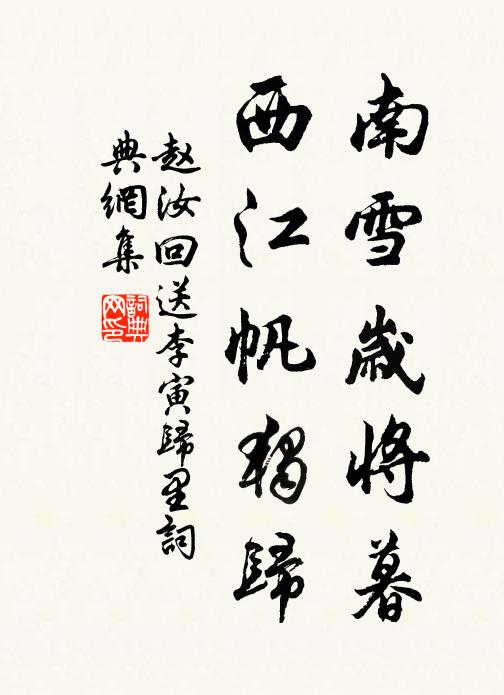 南雪歲將暮
西江帆獨歸
赵汝回送李寅歸里詞
典網集
詞典網印